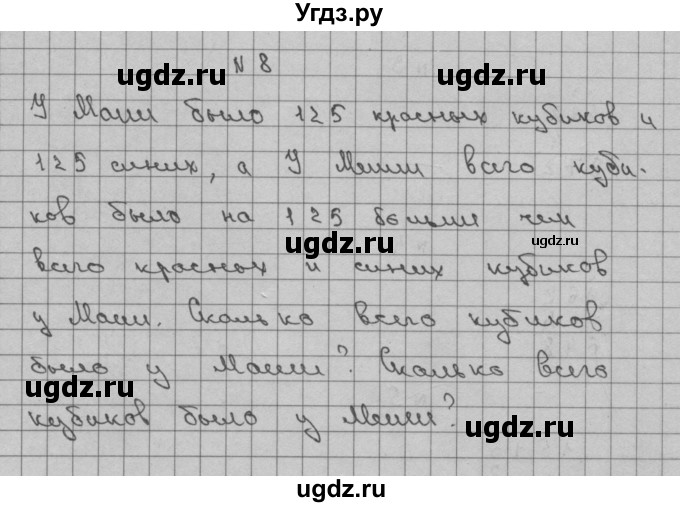 Угдз.ру
ugdz.ru № 8 ugdz.ru
У Маши было 125 красных кубиков и
125 синих, а У Миши всего куби-
ков было на 125 больши чем
ugdz.ru ugdz.ru
всего красных и синих кубиков
у Маши. Сколько всего кубиков
было у Маши? Сколько всего
ugdz.ru
кубиков было у Миши?
ugdz.ru
ugdz.ru